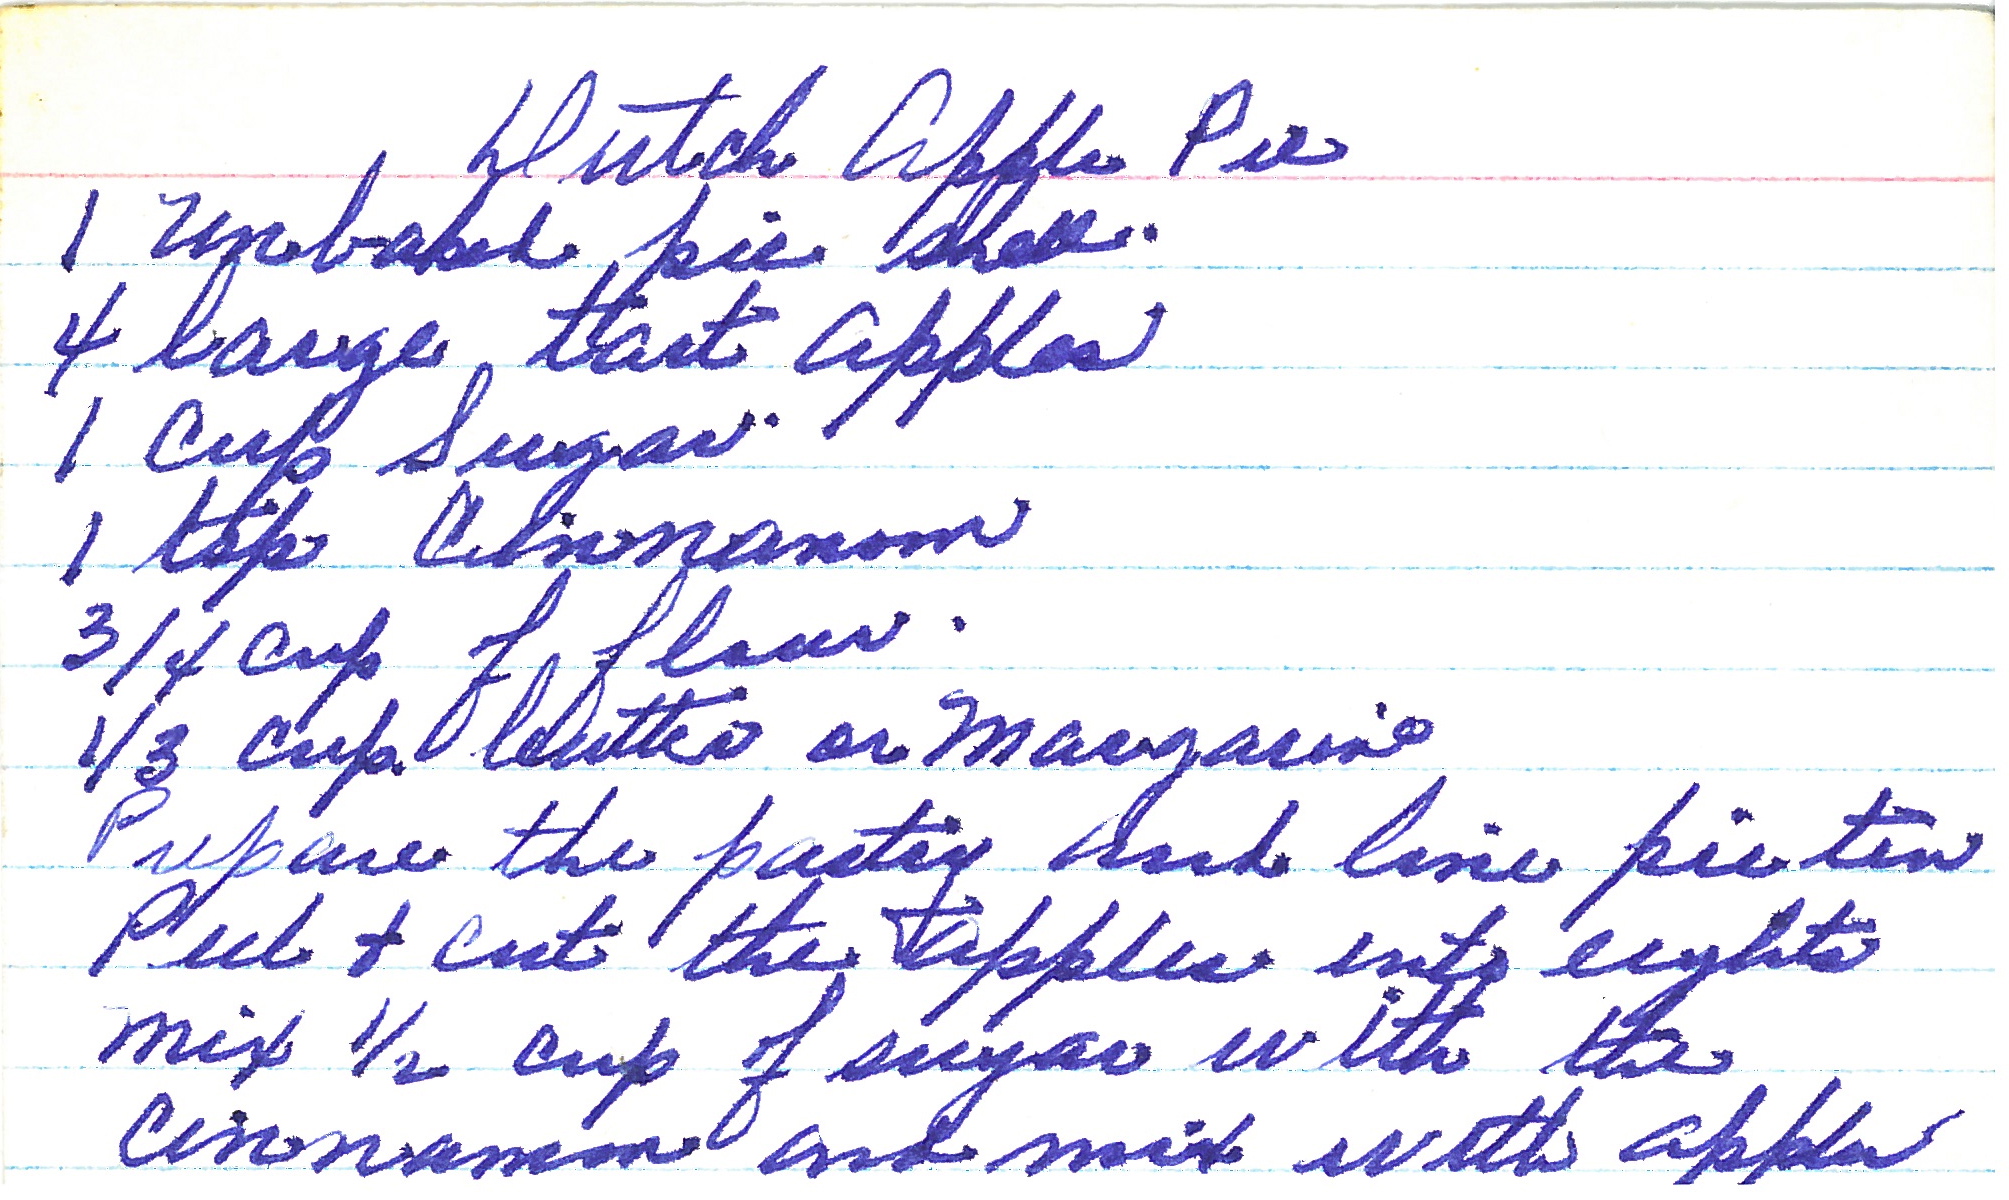 Dutch Apple Pie
1 Unbaked pie shell.
4 large tart apples
1 Cup Sugar.
1 tsp Cinnamom
3/4 cup of flour.
1/3 cup. butter or Margarine
Prepare the pastry and line pie tin
Peel + cut the apples into eights
Mix 1/2 cup of sugar with the
Cinnamom and mix with apples